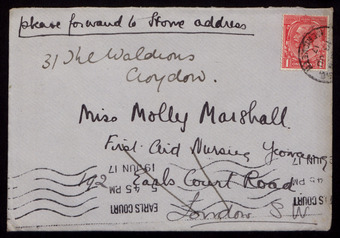 please forward to Home address
31 The Waldrons
Croydon.
Miss Molly Marshall.
First Aid Nursing Yeomanry
192 Earls Court Road
London S W
EARLS COURT
4.5 PM
19 JUN 17
EARLS COURT
4.5 PM
19 JUN 17